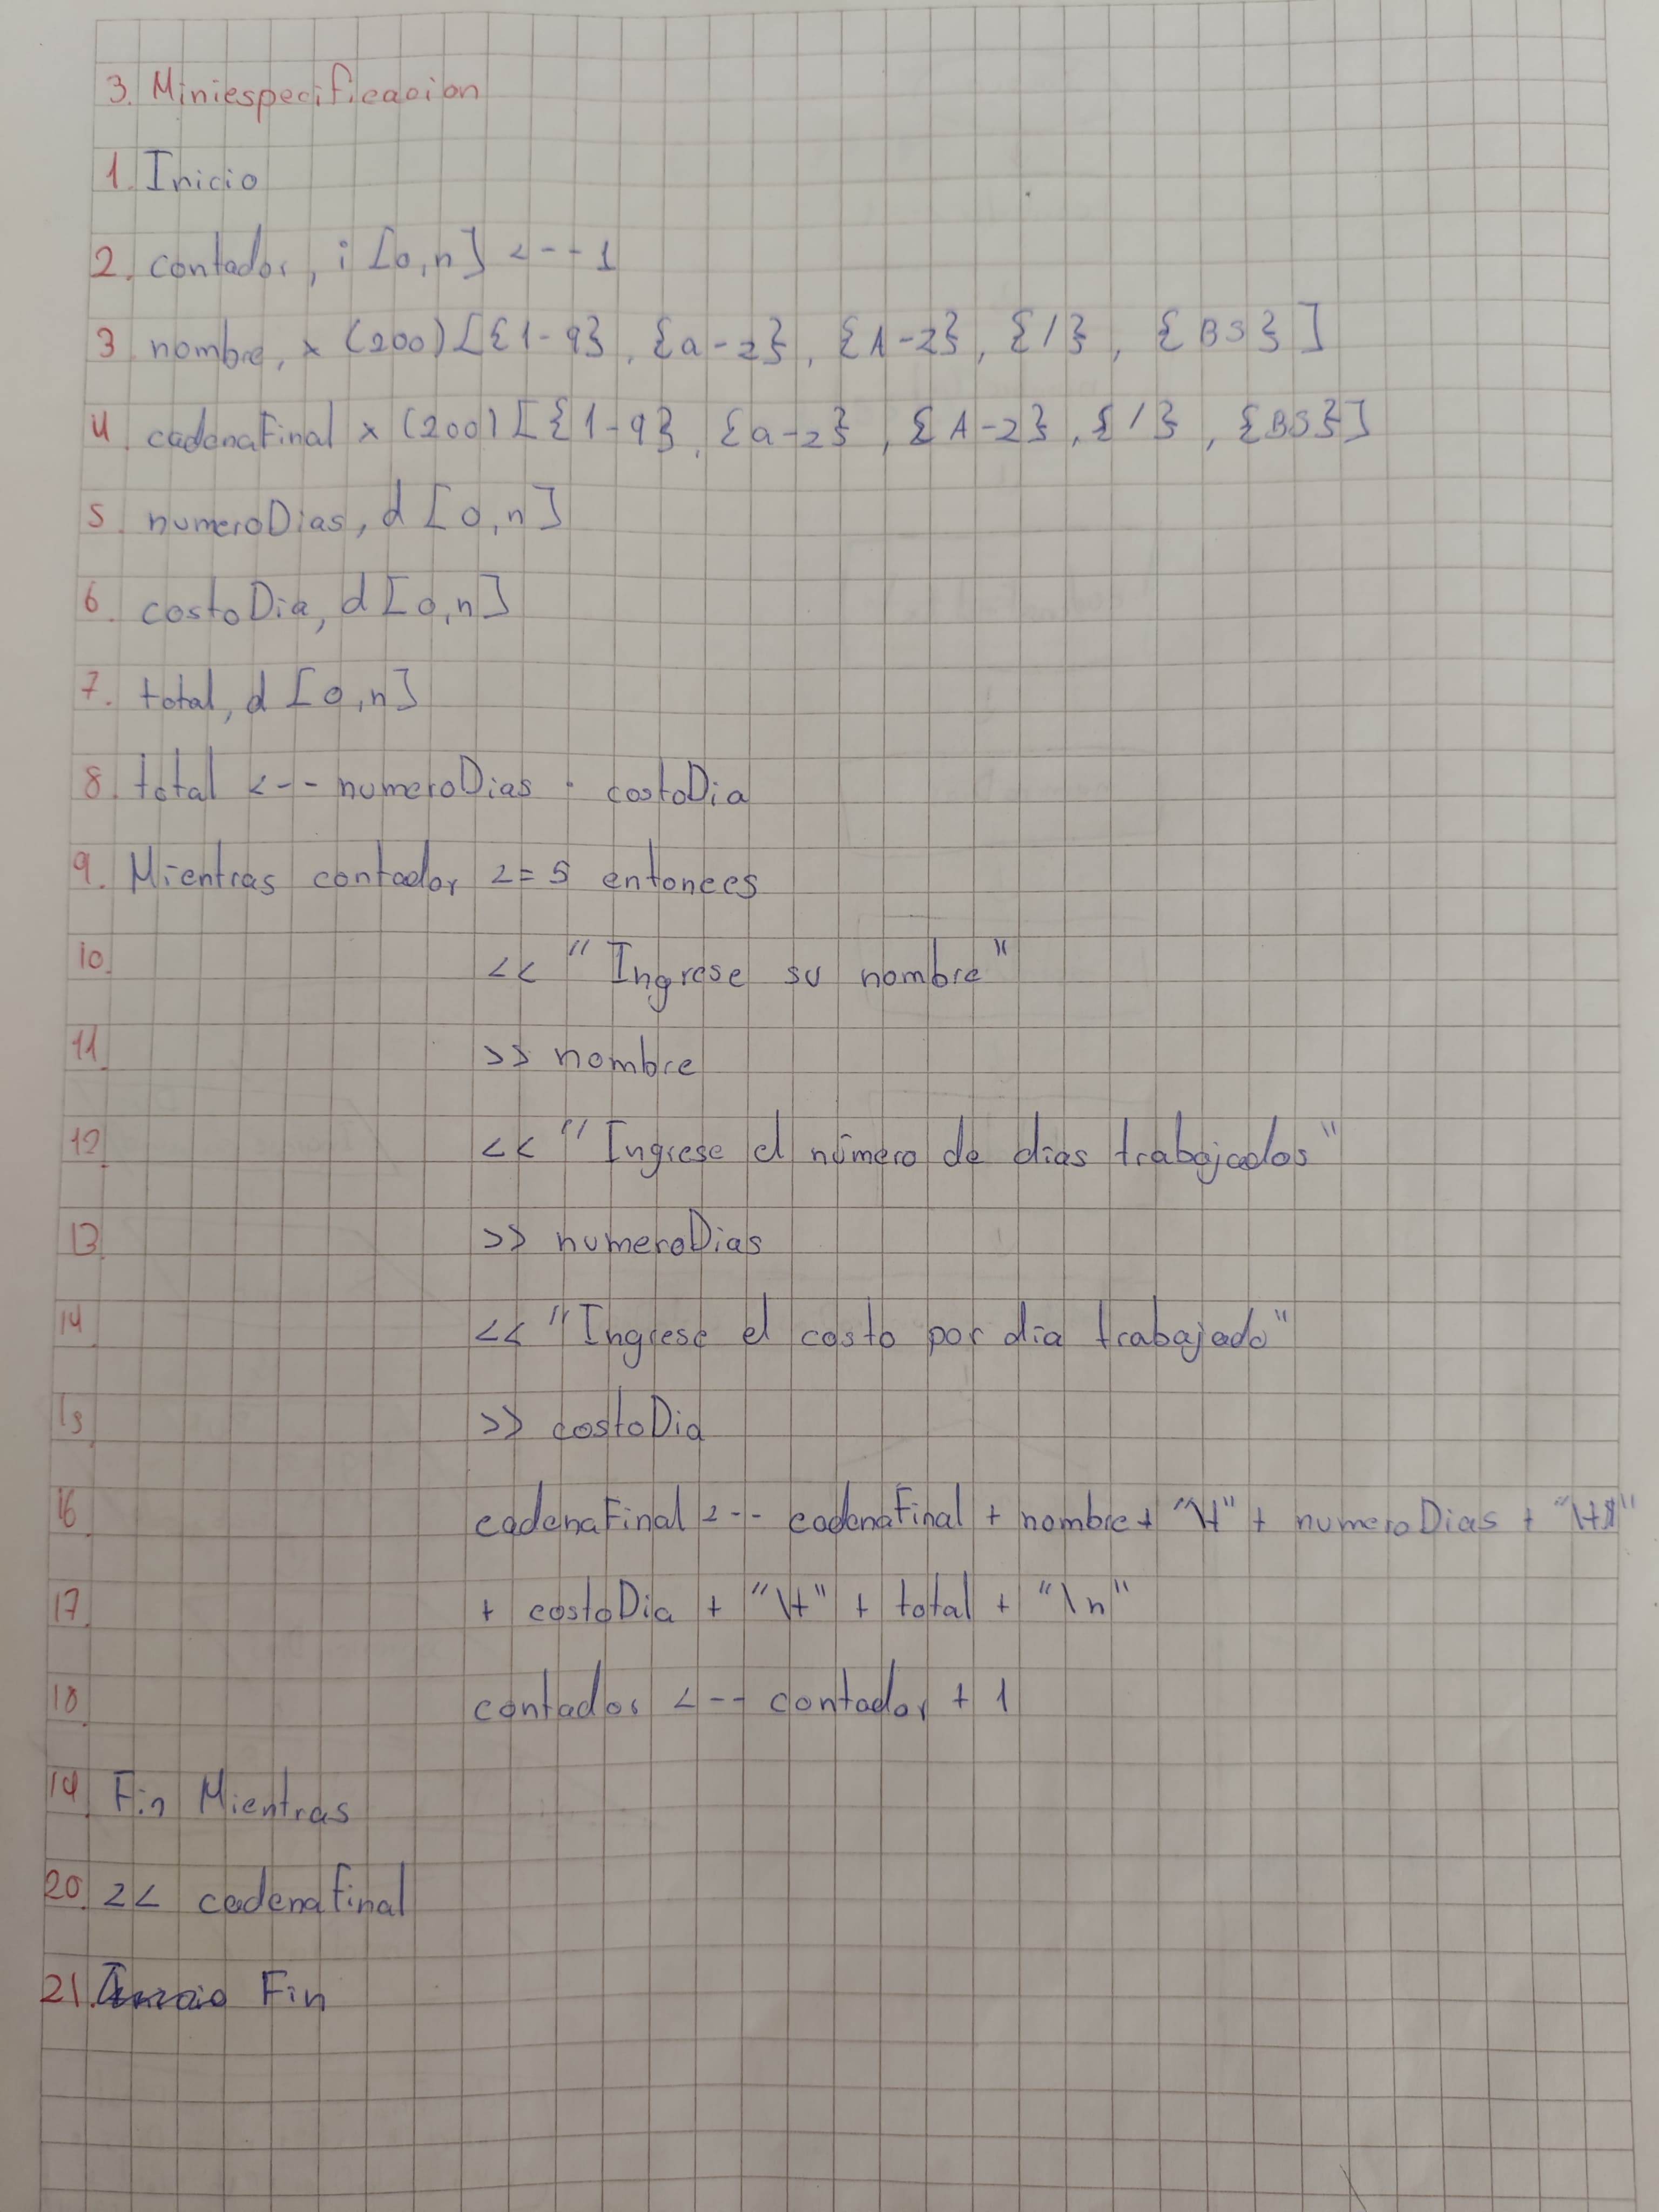 3. Miniespecificacion
1. Inicio
2. contador, i [0,n] <-- 1
3 nombre, x (200) [{1-9}, {a-z}, {A-Z}, {/}, {BS}]
4. cadenaFinal x (200) [{1-9}, {a-z}, {A-Z}, {/}, {BS}]
5. numeroDias, d [0,n]
6. costoDia, d [0,n]
7. total, d [0,n]
8. total <-- numeroDias · costoDia
9. Mientras contador <= 5 entonces
10. << "Ingrese su nombre"
11. >> nombre
12. << "Ingrese el número de dias trabajados"
13. >> numeroDias
14. << "Ingrese el costo por dia trabajado"
15. >> costoDia
16. cadenaFinal <-- cadenaFinal + nombre + "\t" + numeroDias + "\t$"
17. + costoDia + "\t" + total + "\n"
18. contador <-- contador + 1
19. Fin Mientras
20. << cadenaFinal
21. Fin